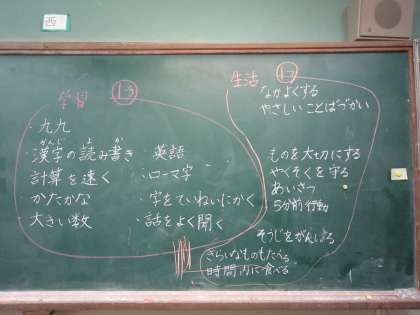 西
学習 1-3
九九
漢字の読み書き
かんじ よ か
計算を速く
かたかな
大きい数
・英語
・ローマ字
・字をていねいにかく
・話をよく聞く
生活 1-2
なかよくする
やさしいことばづかい
ものを大切にする
やくそくを守る
あいさつ
5分前行動
そうじをがんばる
きらいなものもたべる
時間内に食べる